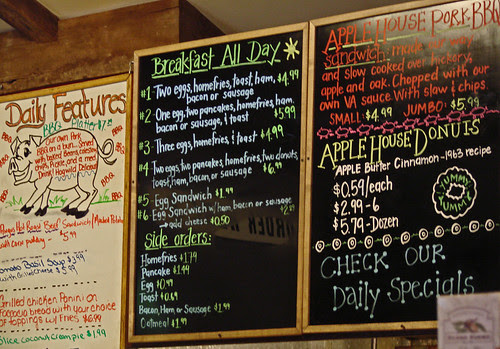 Daily Features
BBQ Platter $7.
Our own Pork
BBQ on a bun. Served
with baked Beans, coleslaw
chips, Pickle and a med
drink! Hogwild Delicious
BBQ
BBQ
BBQ
Roast Beef Sandwich/Mashed Potatoes
with corn pudding - $5.99
Tomato Basil Soup $3.99
with Grilled Cheese $5.99
Grilled chicken Panini on
Focaccia bread with your choice
of toppings w/ Fries $6.99
Slice coconut Cream pie $1.99
Breakfast All Day
#1 Two eggs, homefries, toast, ham, $4.99
bacon or sausage
#2 One egg, two pancakes, homefries, ham,
bacon or sausage, & toast $5.99
#3 Three eggs, homefries, & toast $4.99
#4 Two eggs, two pancakes, homefries, two donuts,
toast, ham, bacon, or sausage $6.99
#5 Egg Sandwich $1.99
#6 Egg Sandwich w/ ham, bacon or sausage
add cheese $0.50
Side orders:
Homefries $1.79
Pancake $1.49
Egg $0.99
Toast $0.69
Bacon, Ham, or Sausage $1.99
Oatmeal $1.99
APPLE HOUSE PORK BBQ
sandwich: made our way
and slow cooked over hickory,
apple and oak. Chopped with our
own VA sauce. With slaw & chips.
SMALL: $4.99 JUMBO: $5.99
APPLE HOUSE DONUTS
APPLE Butter Cinnamon - 1963 recipe
$0.59/each
$2.99 - 6
$5.79 - Dozen
YUMMY
YUMMY
CHECK OUR
Daily Specials